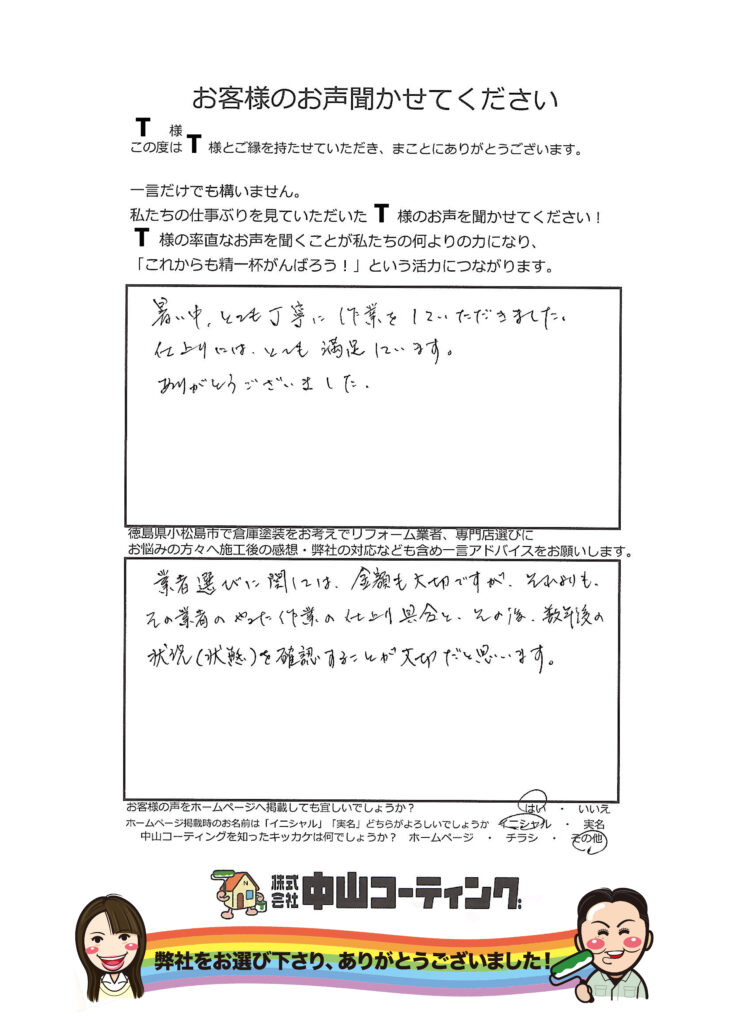 お客様のお声聞かせてください
T 様
この度は T 様とご縁を持たせていただき、まことにありがとうございます。
一言だけでも構いません。
私たちの仕事ぶりを見ていただいた T 様のお声を聞かせてください！
T 様の率直なお声を聞くことが私たちの何よりの力になり、
「これからも精一杯がんばろう！」という活力につながります。
暑い中、とても丁寧に作業をしていただきました。
仕上りには、とても満足しています。
ありがとうございました。
徳島県小松島市で倉庫塗装をお考えでリフォーム業者、専門店選びに
お悩みの方々へ施工後の感想・弊社の対応なども含め一言アドバイスをお願いします。
業者選びに関しては、金額も大切ですが、それよりも、
その業者のやった作業の仕上り具合と、その後、数年後の
状況(状態)を確認することが大切だと思います。
お客様の声をホームページへ掲載しても宜しいでしょうか？ はい ・ いいえ
ホームページ掲載時のお名前は「イニシャル」「実名」どちらがよろしいでしょうか イニシャル ・ 実名
中山コーティングを知ったキッカケは何でしょうか？ ホームページ ・ チラシ ・ その他
N 株式会社 中山コーティング
弊社をお選び下さり、ありがとうございました！